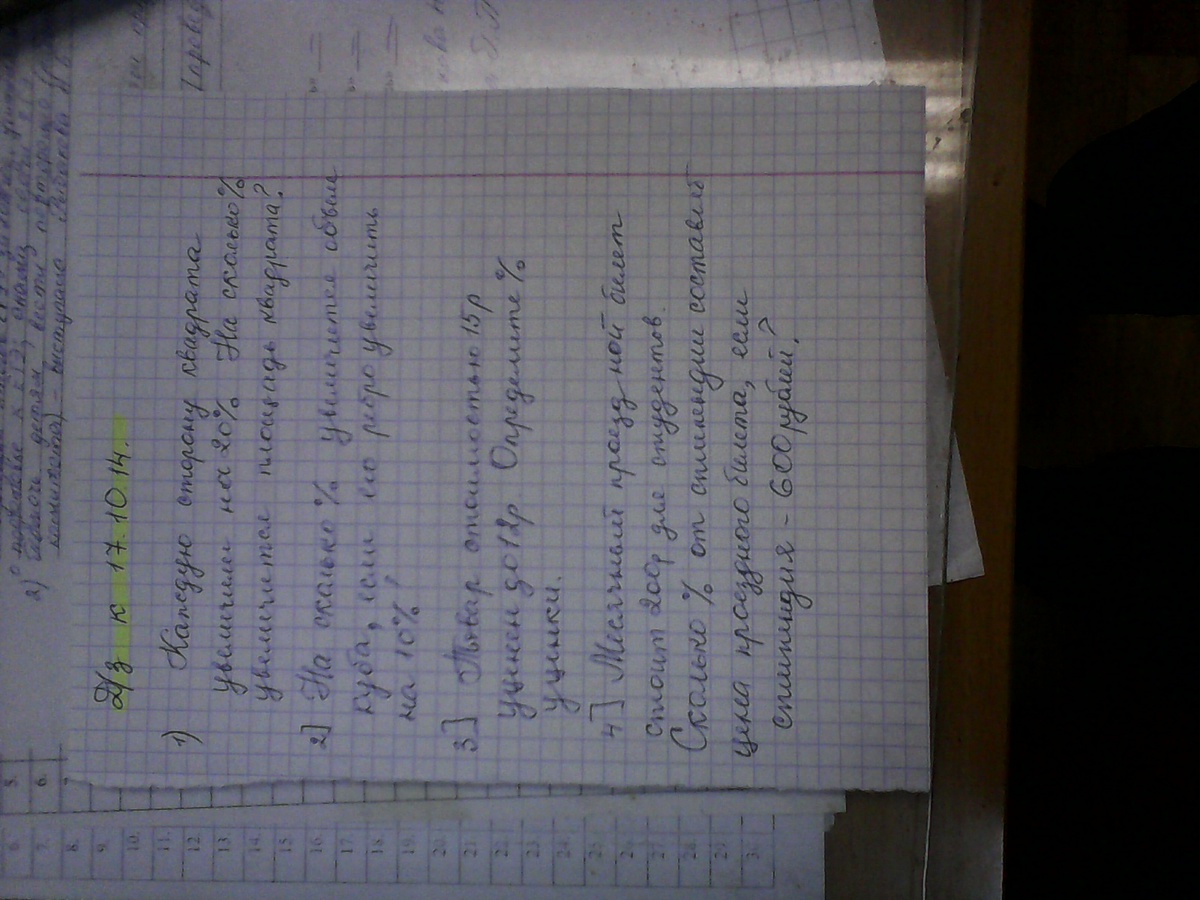 Д/з к 17.10.14.
1) Каждую сторону квадрата
увеличили на 20%. На сколько %
увеличится площадь квадрата?
2] На сколько % увеличится объём
куба, если его ребро увеличить
на 10%?
3] Товар стоимостью 15р
уценен до 12р. Определите %
уценки.
4] Месячный проездной билет
стоит 200р для студентов.
Сколько % от стипендии составит
цена проездного билета, если
стипендия - 600 рублей?
5.
6.
7.
6.
7.
8.
9.
10.
11.
12.
13.
14.
15.
16.
17.
18.
19.
20.
21
22
23
24
25
26
27
28
29
30